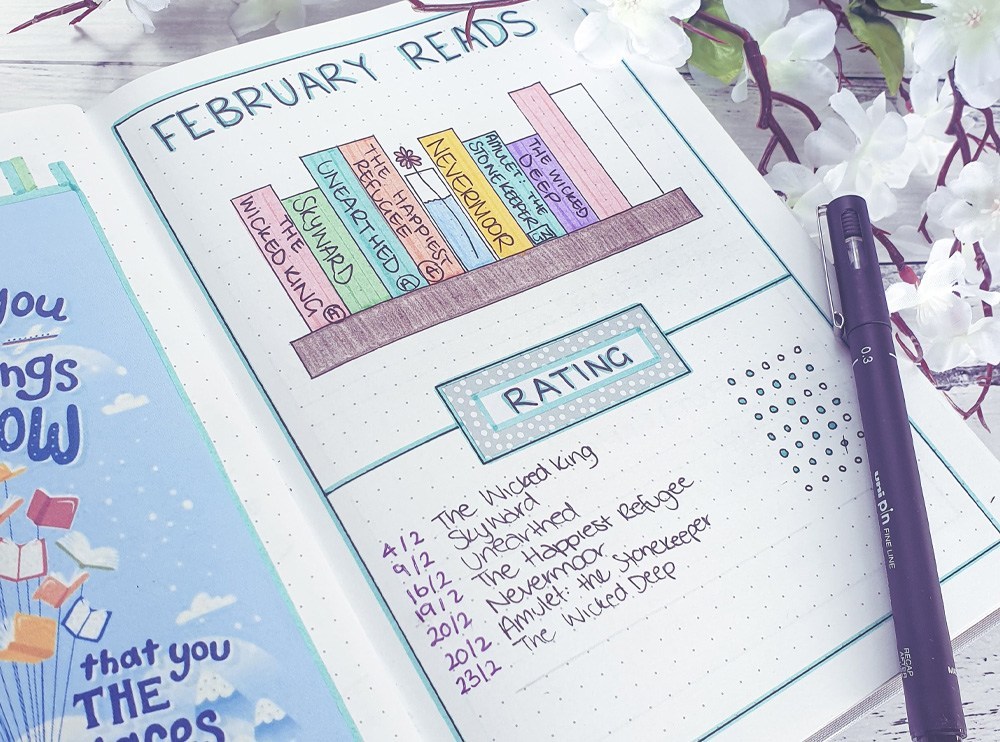 FEBRUARY READS
THE
WICKED KING
SKYWARD
UNEARTHED
THE HAPPIEST
REFUGEE
NEVERMOOR
AMULET: THE
STONEKEEPER
THE WICKED
DEEP
RATING
4/2 The Wicked King
9/2 Skyward
16/2 Unearthed
19/2 The Happiest Refugee
20/2 Nevermoor
20/2 Amulet: the Stonekeeper
23/2 The Wicked Deep
you
ngs
OW
that you
THE
laces
0.3
uni pin FINE LINE
RECAP
AFTER